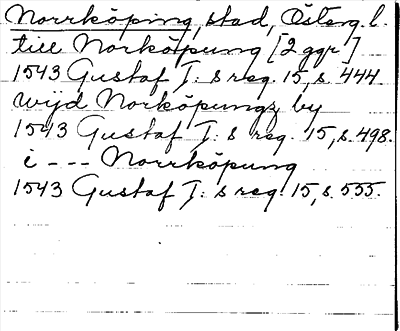 Norrköping, stad, Österg. l.
till Norköpung [2 ggr]
1543 Gustaf I: s reg. 15, s. 444.
wijd Norköpungz by
1543 Gustaf I: s reg. 15, s. 498.
i --- Norrköpung
1543 Gustaf I: s reg. 15, s. 555.